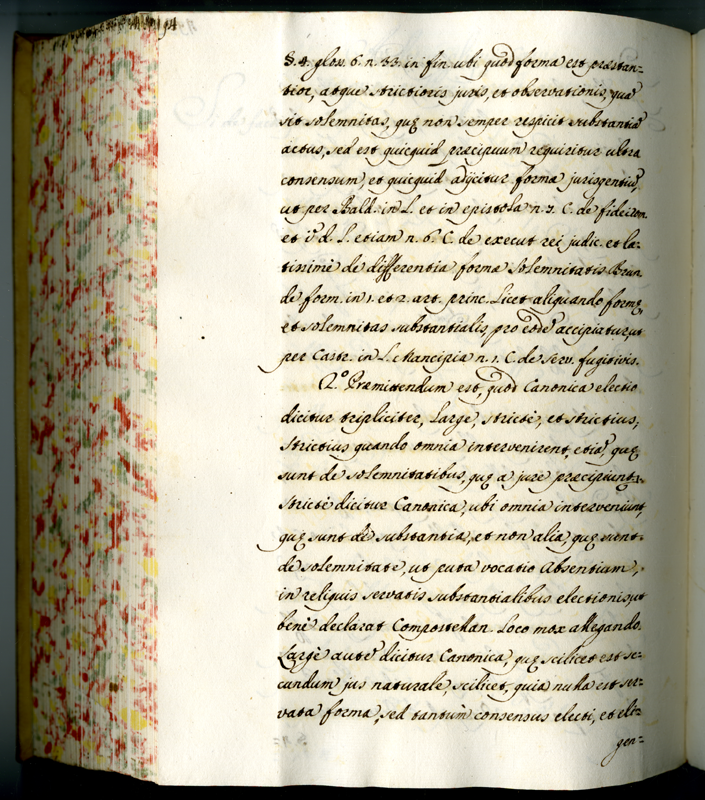 94
§. 4. gloss. 6. n. 33. in fin. ubi quod forma est præstan=
tior, atque strictioris juris, et observationis, quã
sit solemnitas, quę non semper respicit substantiã
actus, sed est quicquid præcipuum requiritur ultra
consensum, et quicquid adijcitur forma jurisgentiũ,
ut per Bald. in L. et in epistola n. 7. C. de fideicom.
et in d. L. etiam n. 6. C. de execut rei judic. et la=
tissimè de differentia formæ Solemnitatis Brun
de form. in 1. et 2. art. princ. Licet aliquando formę,
et solemnitas substantialis, pro eodẽ accipiatur, ut
per Castr. in L. Mancipia n. 1. C. de serv. fugitivis.
2.º Præmittendum est, quod Canonica electio
dicitur tripliciter, Largè, strictè, et strictius,
Strictius quando omnia intervenirent, etiã quę
sunt de solemnitatibus, quę a jure præcipiunt.
Strictè dicitur Canonica, ubi omnia interveniunt,
quę sunt de substantia, et non alia, quę sunt
de solemnitate, ut puta vocatio Absentium,
in reliquis servatis substantialibus electionis, ut
benè declarat Compostellan. Loco mox allegando.
Largè autẽ dicitur Canonica, quę scilicet est se=
cundum jus naturale, scilicet, quia nulla est ser=
vata forma, sed tantùm consensus electi, et eli=
gen=